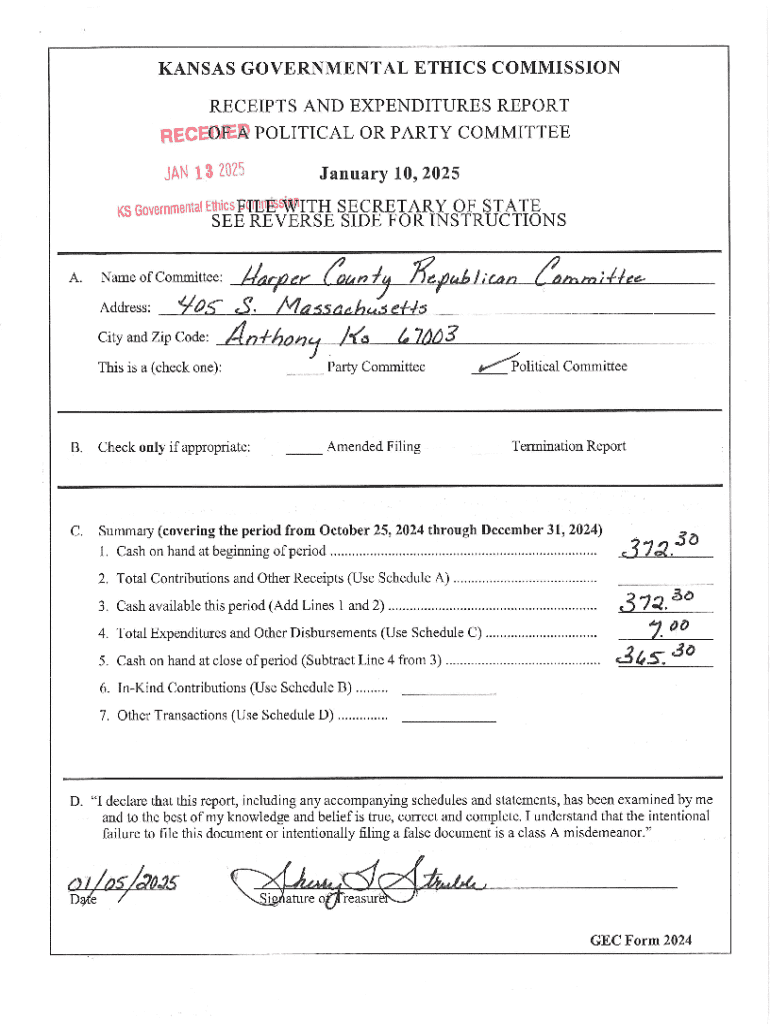 KANSAS GOVERNMENTAL ETHICS COMMISSION
RECEIPTS AND EXPENDITURES REPORT
RECEIVED
OF A POLITICAL OR PARTY COMMITTEE
JAN 13 2025
January 10, 2025
KS Governmental Ethics Commission
FILE WITH SECRETARY OF STATE
SEE REVERSE SIDE FOR INSTRUCTIONS
A. Name of Committee: Harper County Republican Committee
Address: 405 S. Massachusetts
City and Zip Code: Anthony Ks 67003
This is a (check one): ____ Party Committee ✓ Political Committee
B. Check only if appropriate: ____ Amended Filing Termination Report
C. Summary (covering the period from October 25, 2024 through December 31, 2024)
1. Cash on hand at beginning of period ........ 372.30
2. Total Contributions and Other Receipts (Use Schedule A) ........
3. Cash available this period (Add Lines 1 and 2) ........ 372.30
4. Total Expenditures and Other Disbursements (Use Schedule C) ........ 7.00
5. Cash on hand at close of period (Subtract Line 4 from 3) ........ 365.30
6. In-Kind Contributions (Use Schedule B) .........
7. Other Transactions (Use Schedule D) ..............
D. “I declare that this report, including any accompanying schedules and statements, has been examined by me
and to the best of my knowledge and belief is true, correct and complete. I understand that the intentional
failure to file this document or intentionally filing a false document is a class A misdemeanor.”
01/05/2025 Sherry L Struble
Date Signature of Treasurer
GEC Form 2024